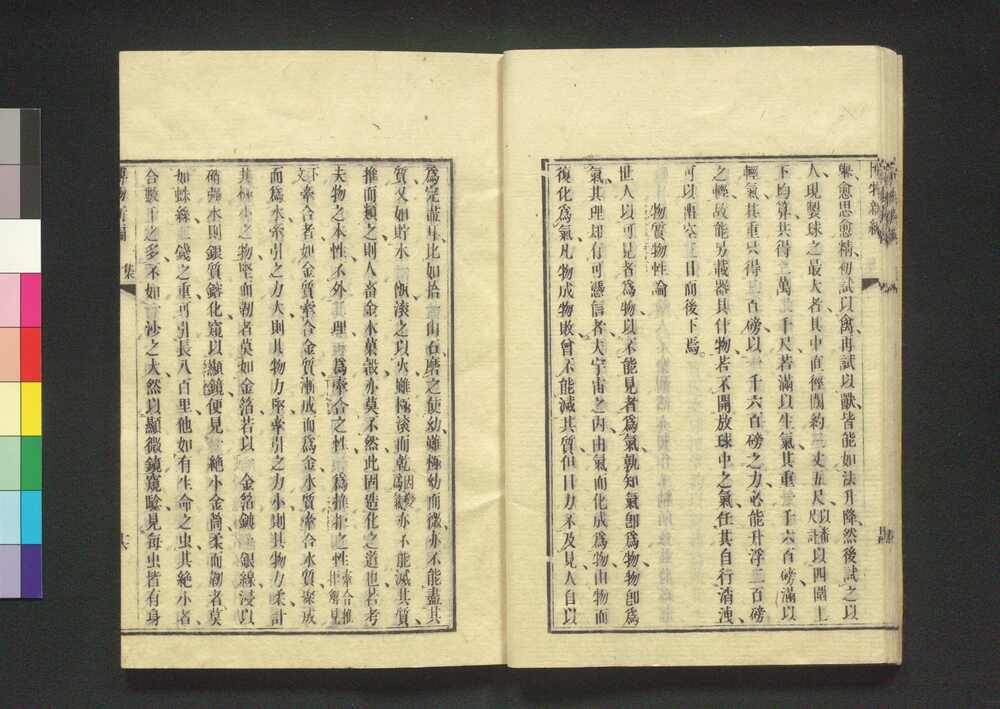 博物新編
愈思愈精初試以禽再試以獸皆能如法升降然後試之以
人現製球之最大者其中直徑闊約三丈五尺以番尺計以四圍上
下均算共得 萬 千尺若滿以生氣其重 千六百磅滿以
輕氣其重只得 百磅以 千六百磅之力必能升浮 百磅
之輕故能另載器具什物若不開放球中之氣任其自行消洩
可以 室 日而後下焉
物質物性論
世人以可見者爲物以不能見者爲氣孰知氣卽爲物物卽爲
氣其理却有可憑信者夫宇宙之內由氣而化成爲物由物而
復化爲氣凡物成物敗曾不能減其質但目力不及見人自以
爲定 比如拾 山石磨之使幼雖極幼而微亦不能盡其
質又如貯水 滾之以火雖極滾而乾 亦不能減其質
推而類之則人畜金木菓穀亦莫不然此固造化之道也若考
夫物之本性不外 理 爲牽合之性 爲推拒之性牽合推拒解見
下文牽合者如金質牽合金質漸成而爲金水質牽合水質漸成
而爲水牽引之力大則其物力堅牽引之力小則其物力柔計
其極小之物堅而韌者莫如金箔若以 金箔鍍 銀線浸以
硝强水則銀質鎔化窺以顯 鏡便見 絕小金筒柔而韌者莫
如蛛絲 錢之重可引長八百里他如有生命之虫其絕小者
合數千之多不如 沙之大然以顯微鏡窺驗見每虫皆有身
博物新編
集